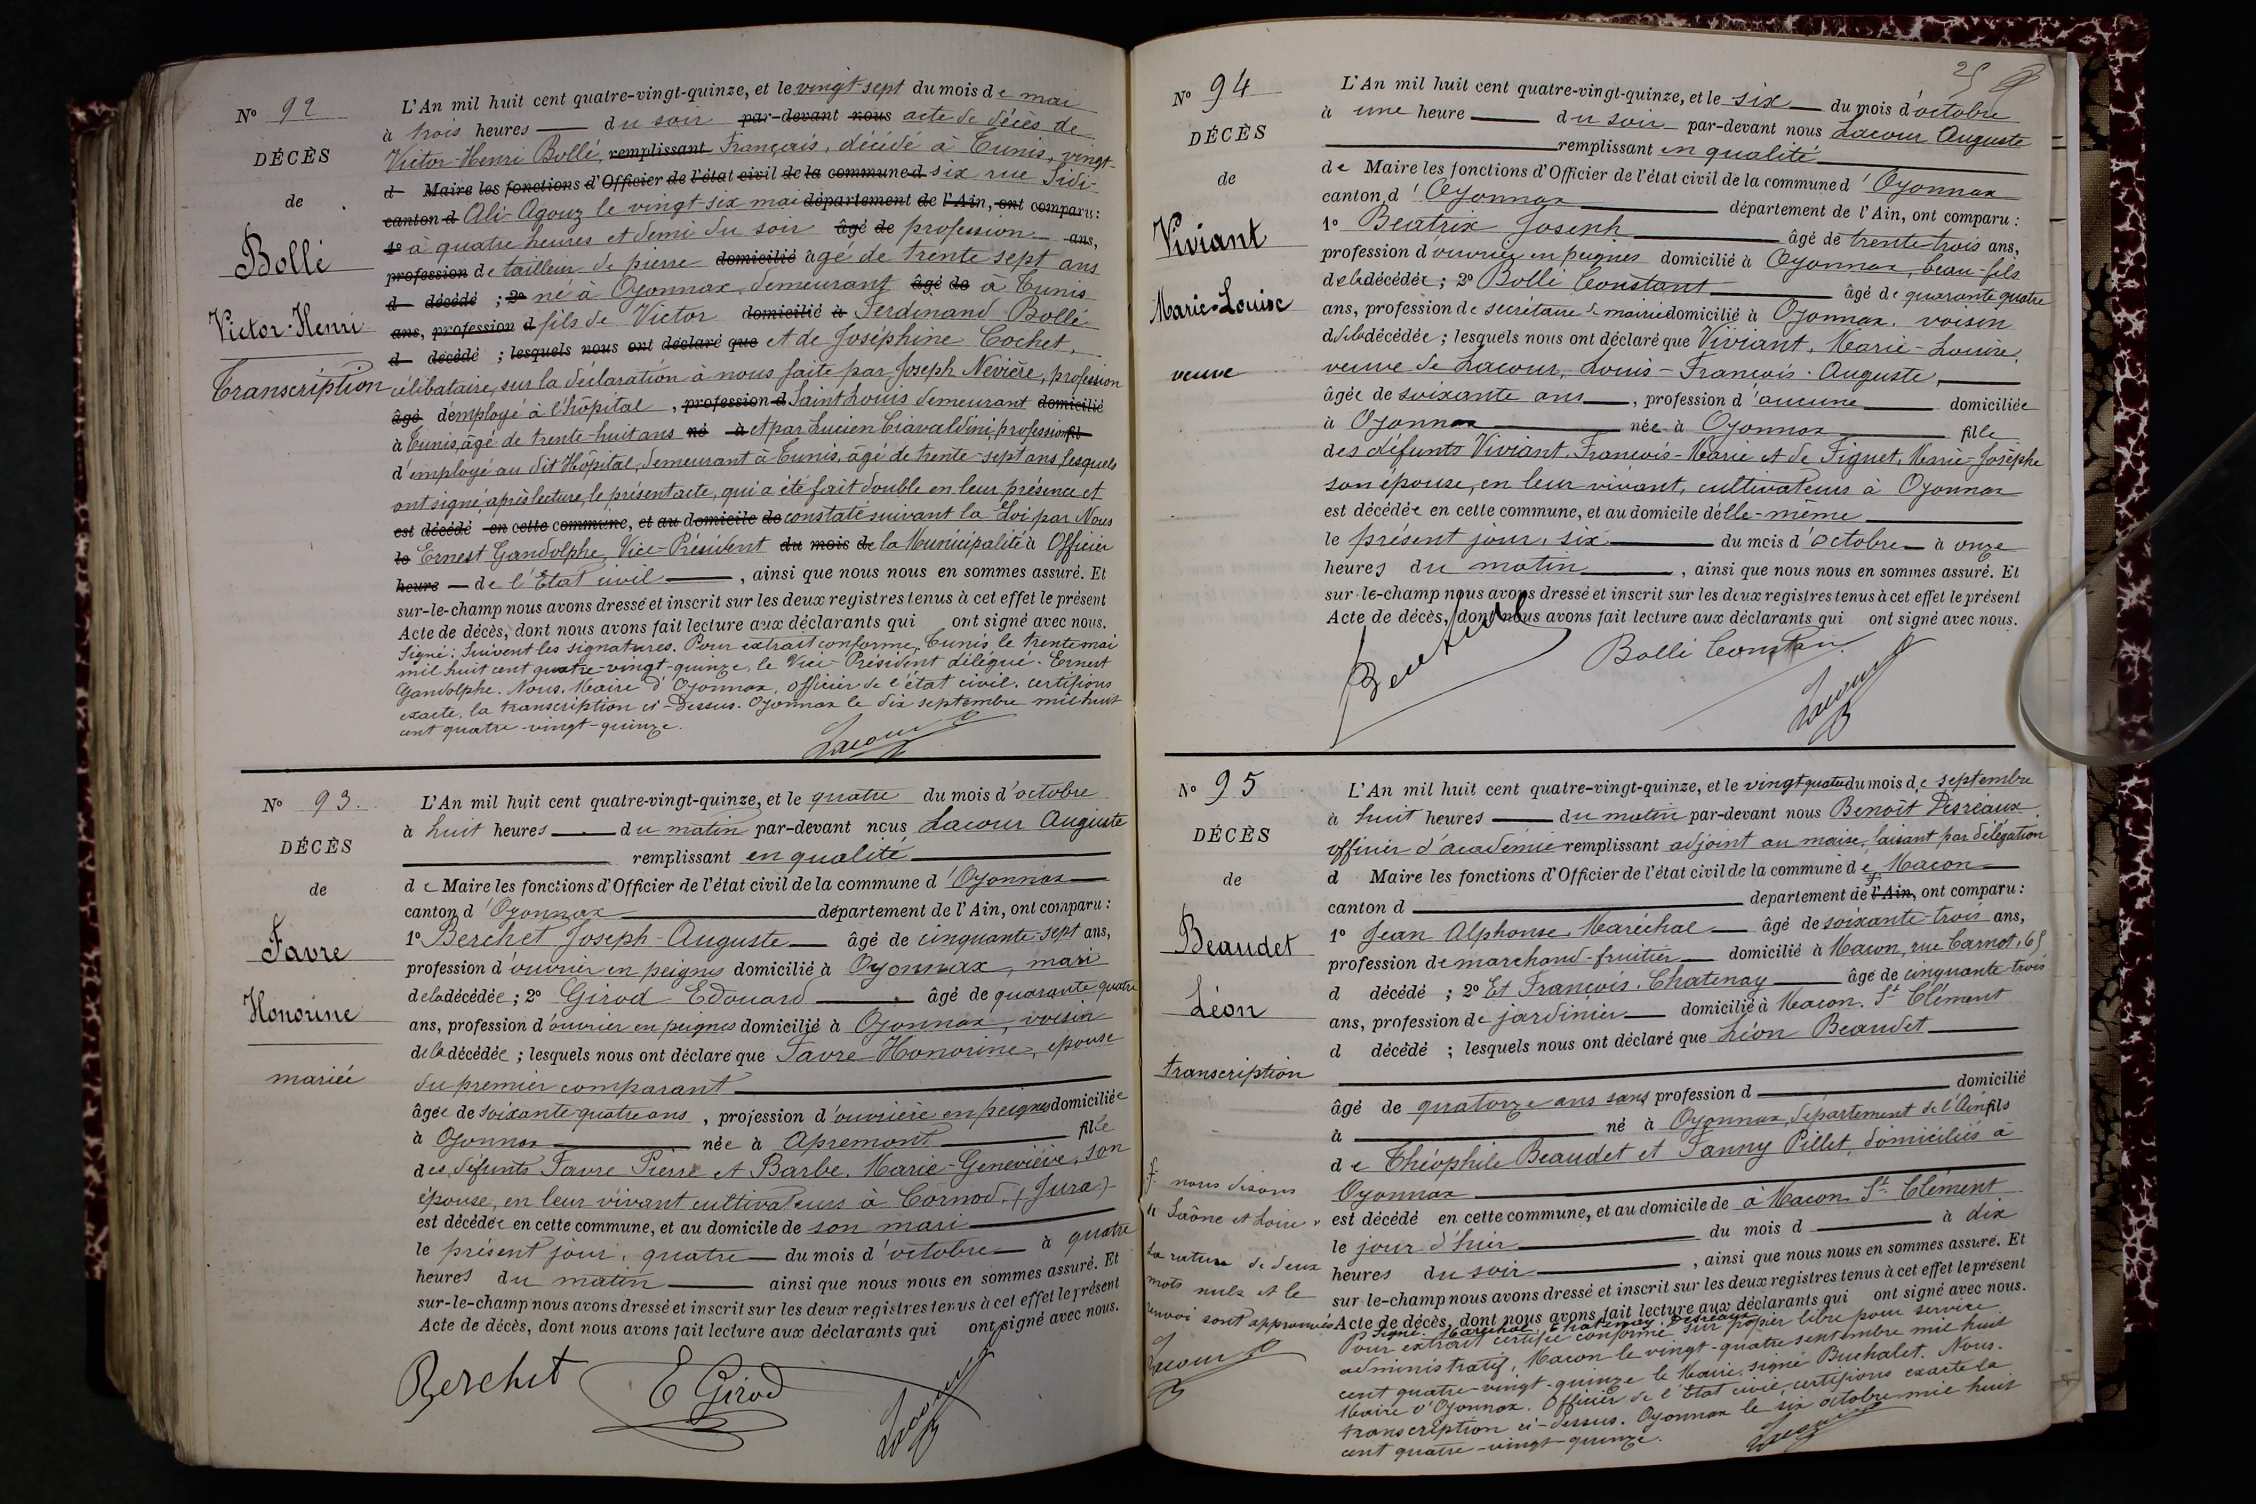 Nº 92
DÉCÈS
de
Bollé
Victor-Henri
Transcription
L'An mil huit cent quatre-vingt-quinze, et le vingt-sept du mois de mai
à trois heures du soir par-devant nous acte de décès de
Victor-Henri Bollé, remplissant Français, décédé à Tunis, vingt-
d Maire les fonctions d'Officier de l'état civil de la commune d six rue Sidi-
canton d Ali-Agouz le vingt six mai département de l'Ain, ont comparu :
1º à quatre heures et demi du soir âgé de profession ans,
profession de tailleur de pierre domicilié âgé de trente sept ans
d décédé ; 2º né à Oyonnax, demeurant âgé de à Tunis
ans, profession d fils de Victor domicilié à Ferdinand Bollé
d décédé ; lesquels nous ont déclaré que et de Joséphine Cochet,
célibataire, sur la déclaration à nous faite par Joseph Nevière, profession
âgé d'employé à l'hôpital, profession d Saint Louis demeurant domicilié
à Tunis, âgé de trente-huit ans né à et par Lucien Ciavaldini, profession fil
d'employé au dit Hôpital, demeurant à Tunis, âgé de trente-sept ans lesquels
ont signé après lecture, le présent acte, qui a été fait double en leur présence et
est décédé en cette commune, et au domicile de constaté suivant la Loi par Nous
le Ernest Gandolphe, Vice-Président du mois de la Municipalité à Officier
heure de l'Etat civil, ainsi que nous nous en sommes assuré. Et
sur-le-champ nous avons dressé et inscrit sur les deux registres tenus à cet effet le présent
Acte de décès, dont nous avons fait lecture aux déclarants qui ont signé avec nous.
Signé : Suivent les signatures. Pour extrait conforme, Tunis, le trente mai
mil huit cent quatre-vingt-quinze, le Vice-Président délégué. Ernest
Gandolphe. Nous, Maire d'Oyonnax, officier de l'état civil, certifions
exacte, la transcription ci-dessus. Oyonnax le dix septembre mil huit
cent quatre-vingt-quinze.
Lacour
Nº 93.
DÉCÈS
de
Favre
Honorine
mariée
L'An mil huit cent quatre-vingt-quinze, et le quatre du mois d'octobre
à huit heures du matin par-devant nous Lacour Auguste
remplissant en qualité
de Maire les fonctions d'Officier de l'état civil de la commune d'Oyonnax
canton d'Oyonnax département de l'Ain, ont comparu :
1º Berchet Joseph-Auguste âgé de cinquante-sept ans,
profession d'ouvrier en peignes domicilié à Oyonnax, mari
de la décédée ; 2º Girod Edouard âgé de quarante quatre
ans, profession d'ouvrier en peignes domicilié à Oyonnax, voisin
de la décédée ; lesquels nous ont déclaré que Favre Honorine, épouse
du premier comparant
âgée de soixante-quatre ans, profession d'ouvrière en peignes domiciliée
à Oyonnax née à Apremont fille
des défunts Favre Pierre et Barbe, Marie-Geneviève, son
épouse, en leur vivant cultivateurs à Cornod, (Jura)
est décédée en cette commune, et au domicile de son mari
le présent jour, quatre du mois d'octobre à quatre
heures du matin ainsi que nous nous en sommes assuré. Et
sur-le-champ nous avons dressé et inscrit sur les deux registres tenus à cet effet le présent
Acte de décès, dont nous avons fait lecture aux déclarants qui ont signé avec nous.
Berchet E Girod Lacour
25
Nº 94
DÉCÈS
de
Viviant
Marie-Louise
veuve
L'An mil huit cent quatre-vingt-quinze, et le six du mois d'octobre
à une heure du soir par-devant nous Lacour Auguste
remplissant en qualité
de Maire les fonctions d'Officier de l'état civil de la commune d'Oyonnax
canton d'Oyonnax département de l'Ain, ont comparu :
1º Béatrix Joseph âgé de trente-trois ans,
profession d'ouvrier en peignes domicilié à Oyonnax, beau-fils
de la décédée ; 2º Bollé Constant âgé de quarante quatre
ans, profession de secrétaire de mairie domicilié à Oyonnax, voisin
d de la décédée ; lesquels nous ont déclaré que Viviant, Marie-Louise,
veuve de Lacour, Louis-François-Auguste,
âgée de soixante ans, profession d'aucune domiciliée
à Oyonnax née à Oyonnax fille
des défunts Viviant, François-Marie et de Figuet, Marie-Josèphe
son épouse, en leur vivant, cultivateurs à Oyonnax
est décédée en cette commune, et au domicile d'elle-même
le présent jour, six du mois d'octobre à onze
heures du matin, ainsi que nous nous en sommes assuré. Et
sur-le-champ nous avons dressé et inscrit sur les deux registres tenus à cet effet le présent
Acte de décès, dont nous avons fait lecture aux déclarants qui ont signé avec nous.
Beatrix Bollé Constant Lacour
Nº 95
DÉCÈS
de
Beaudet
Léon
transcription
L'An mil huit cent quatre-vingt-quinze, et le vingt quatre du mois de septembre
à huit heures du matin par-devant nous Benoît Desréaux
officier d'académie remplissant adjoint au maire, faisant par délégation
d Maire les fonctions d'Officier de l'état civil de la commune de Macon
canton d département de l'Ain, ont comparu :
1º Jean Alphonse Maréchal âgé de soixante-trois ans,
profession de marchand-fruitier domicilié à Macon, rue Carnot, 65
d décédé ; 2º Et François Chatenay âgé de cinquante-trois
ans, profession de jardinier domicilié à Macon. St Clément
d décédé ; lesquels nous ont déclaré que Léon Beaudet
âgé de quatorze ans sans profession d domicilié
à né à Oyonnax, département de l'Ain fils
de Théophile Beaudet et Fanny Pillet, domiciliés à
Oyonnax
est décédé en cette commune, et au domicile de à Macon St Clément
le jour d'hier du mois d à dix
heures du soir, ainsi que nous nous en sommes assuré. Et
sur-le-champ nous avons dressé et inscrit sur les deux registres tenus à cet effet le présent
Acte de décès, dont nous avons fait lecture aux déclarants qui ont signé avec nous.
Signé : Maréchal, Chatenay, Desréaux
Pour extrait certifié conforme sur papier libre pour service
administratif, Macon le vingt-quatre septembre mil huit
cent quatre-vingt-quinze le Maire, signé Buchalet. Nous.
Maire d'Oyonnax. Officier de l'état civil, certifions exacte la
transcription ci-dessus. Oyonnax le six octobre mil huit
cent quatre-vingt-quinze.
Lacour
nous disons
"Saône et Loire"
La rature de deux
mots nuls et le
renvoi sont approuvés
Lacour